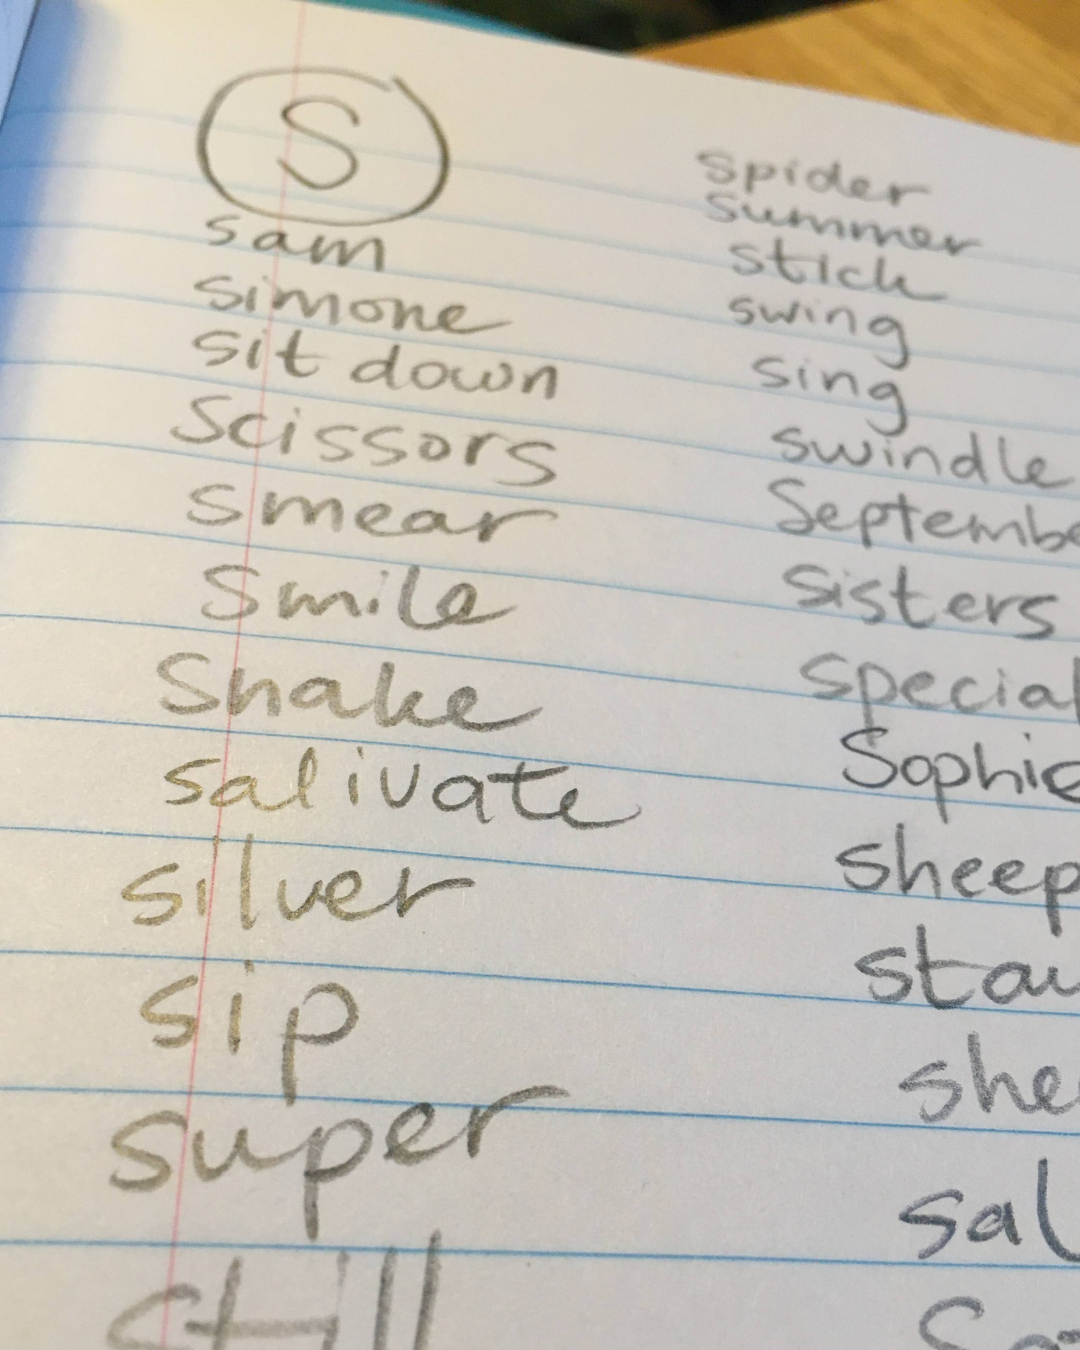 S
sam
simone
sit down
Scissors
smear
Smile
Snake
salivate
silver
sip
super
still
spider
summer
stick
swing
sing
swindle
Septembe
sisters
special
Sophie
sheep
she
sal